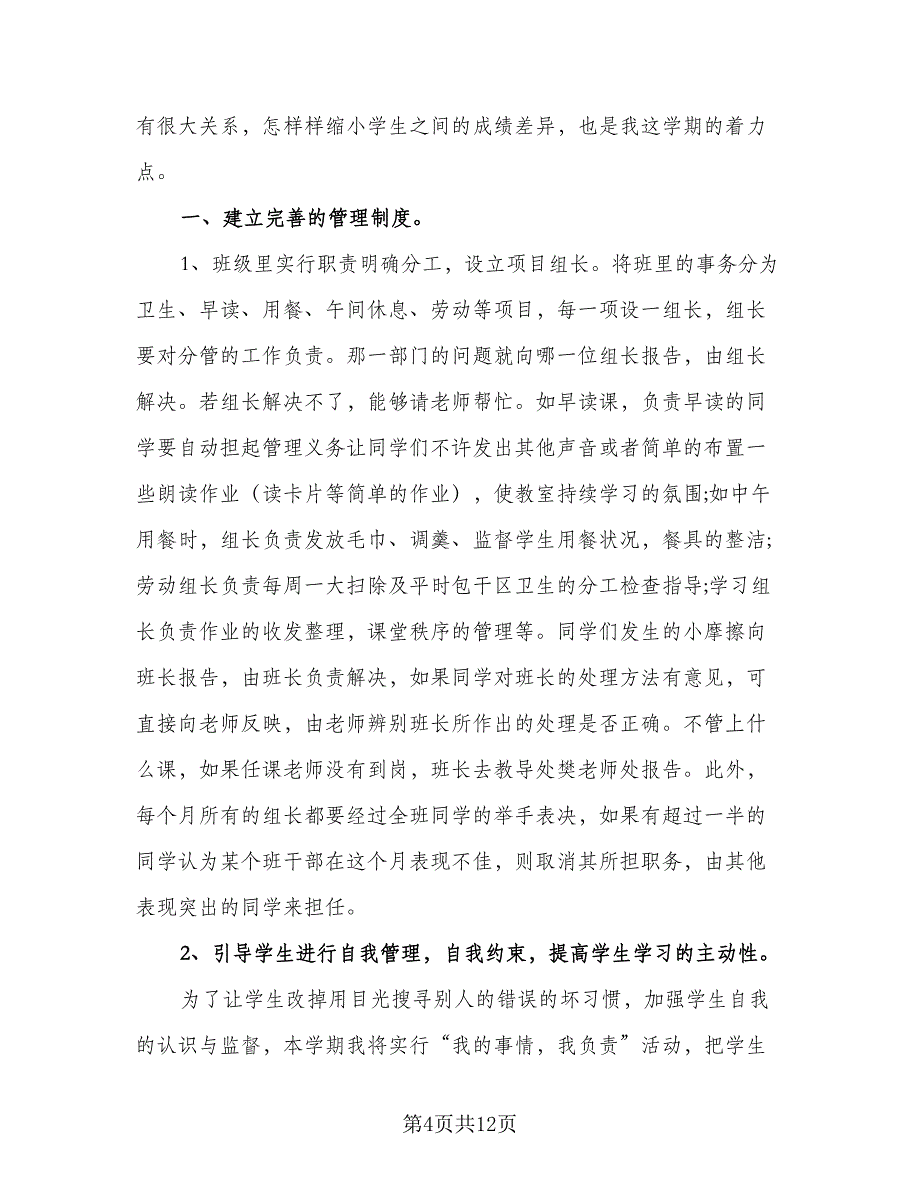 有很大关系，怎样样缩小学生之间的成绩差异，也是我这学期的着力
点。
一、建立完善的管理制度。
1、班级里实行职责明确分工，设立项目组长。将班里的事务分为
卫生、早读、用餐、午间休息、劳动等项目，每一项设一组长，组长
要对分管的工作负责。那一部门的问题就向哪一位组长报告，由组长
解决。若组长解决不了，能够请老师帮忙。如早读课，负责早读的同
学要自动担起管理义务让同学们不许发出其他声音或者简单的布置一
些朗读作业（读卡片等简单的作业），使教室持续学习的氛围;如中午
用餐时，组长负责发放毛巾、调羹、监督学生用餐状况，餐具的整洁;
劳动组长负责每周一大扫除及平时包干区卫生的分工检查指导;学习组
长负责作业的收发整理，课堂秩序的管理等。同学们发生的小摩擦向
班长报告，由班长负责解决，如果同学对班长的处理方法有意见，可
直接向老师反映，由老师辨别班长所作出的处理是否正确。不管上什
么课，如果任课老师没有到岗，班长去教导处樊老师处报告。此外，
每个月所有的组长都要经过全班同学的举手表决，如果有超过一半的
同学认为某个班干部在这个月表现不佳，则取消其所担职务，由其他
表现突出的同学来担任。
2、引导学生进行自我管理，自我约束，提高学生学习的主动性。
为了让学生改掉用目光搜寻别人的错误的坏习惯，加强学生自我
的认识与监督，本学期我将实行“我的事情，我负责”活动，把学生
第4页共12页